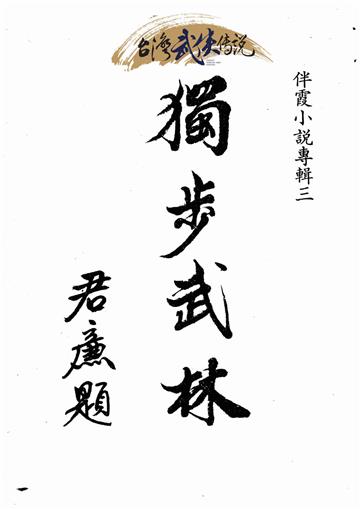 台灣武俠傳說
伴霞小說專輯三
獨步武林
君廉題